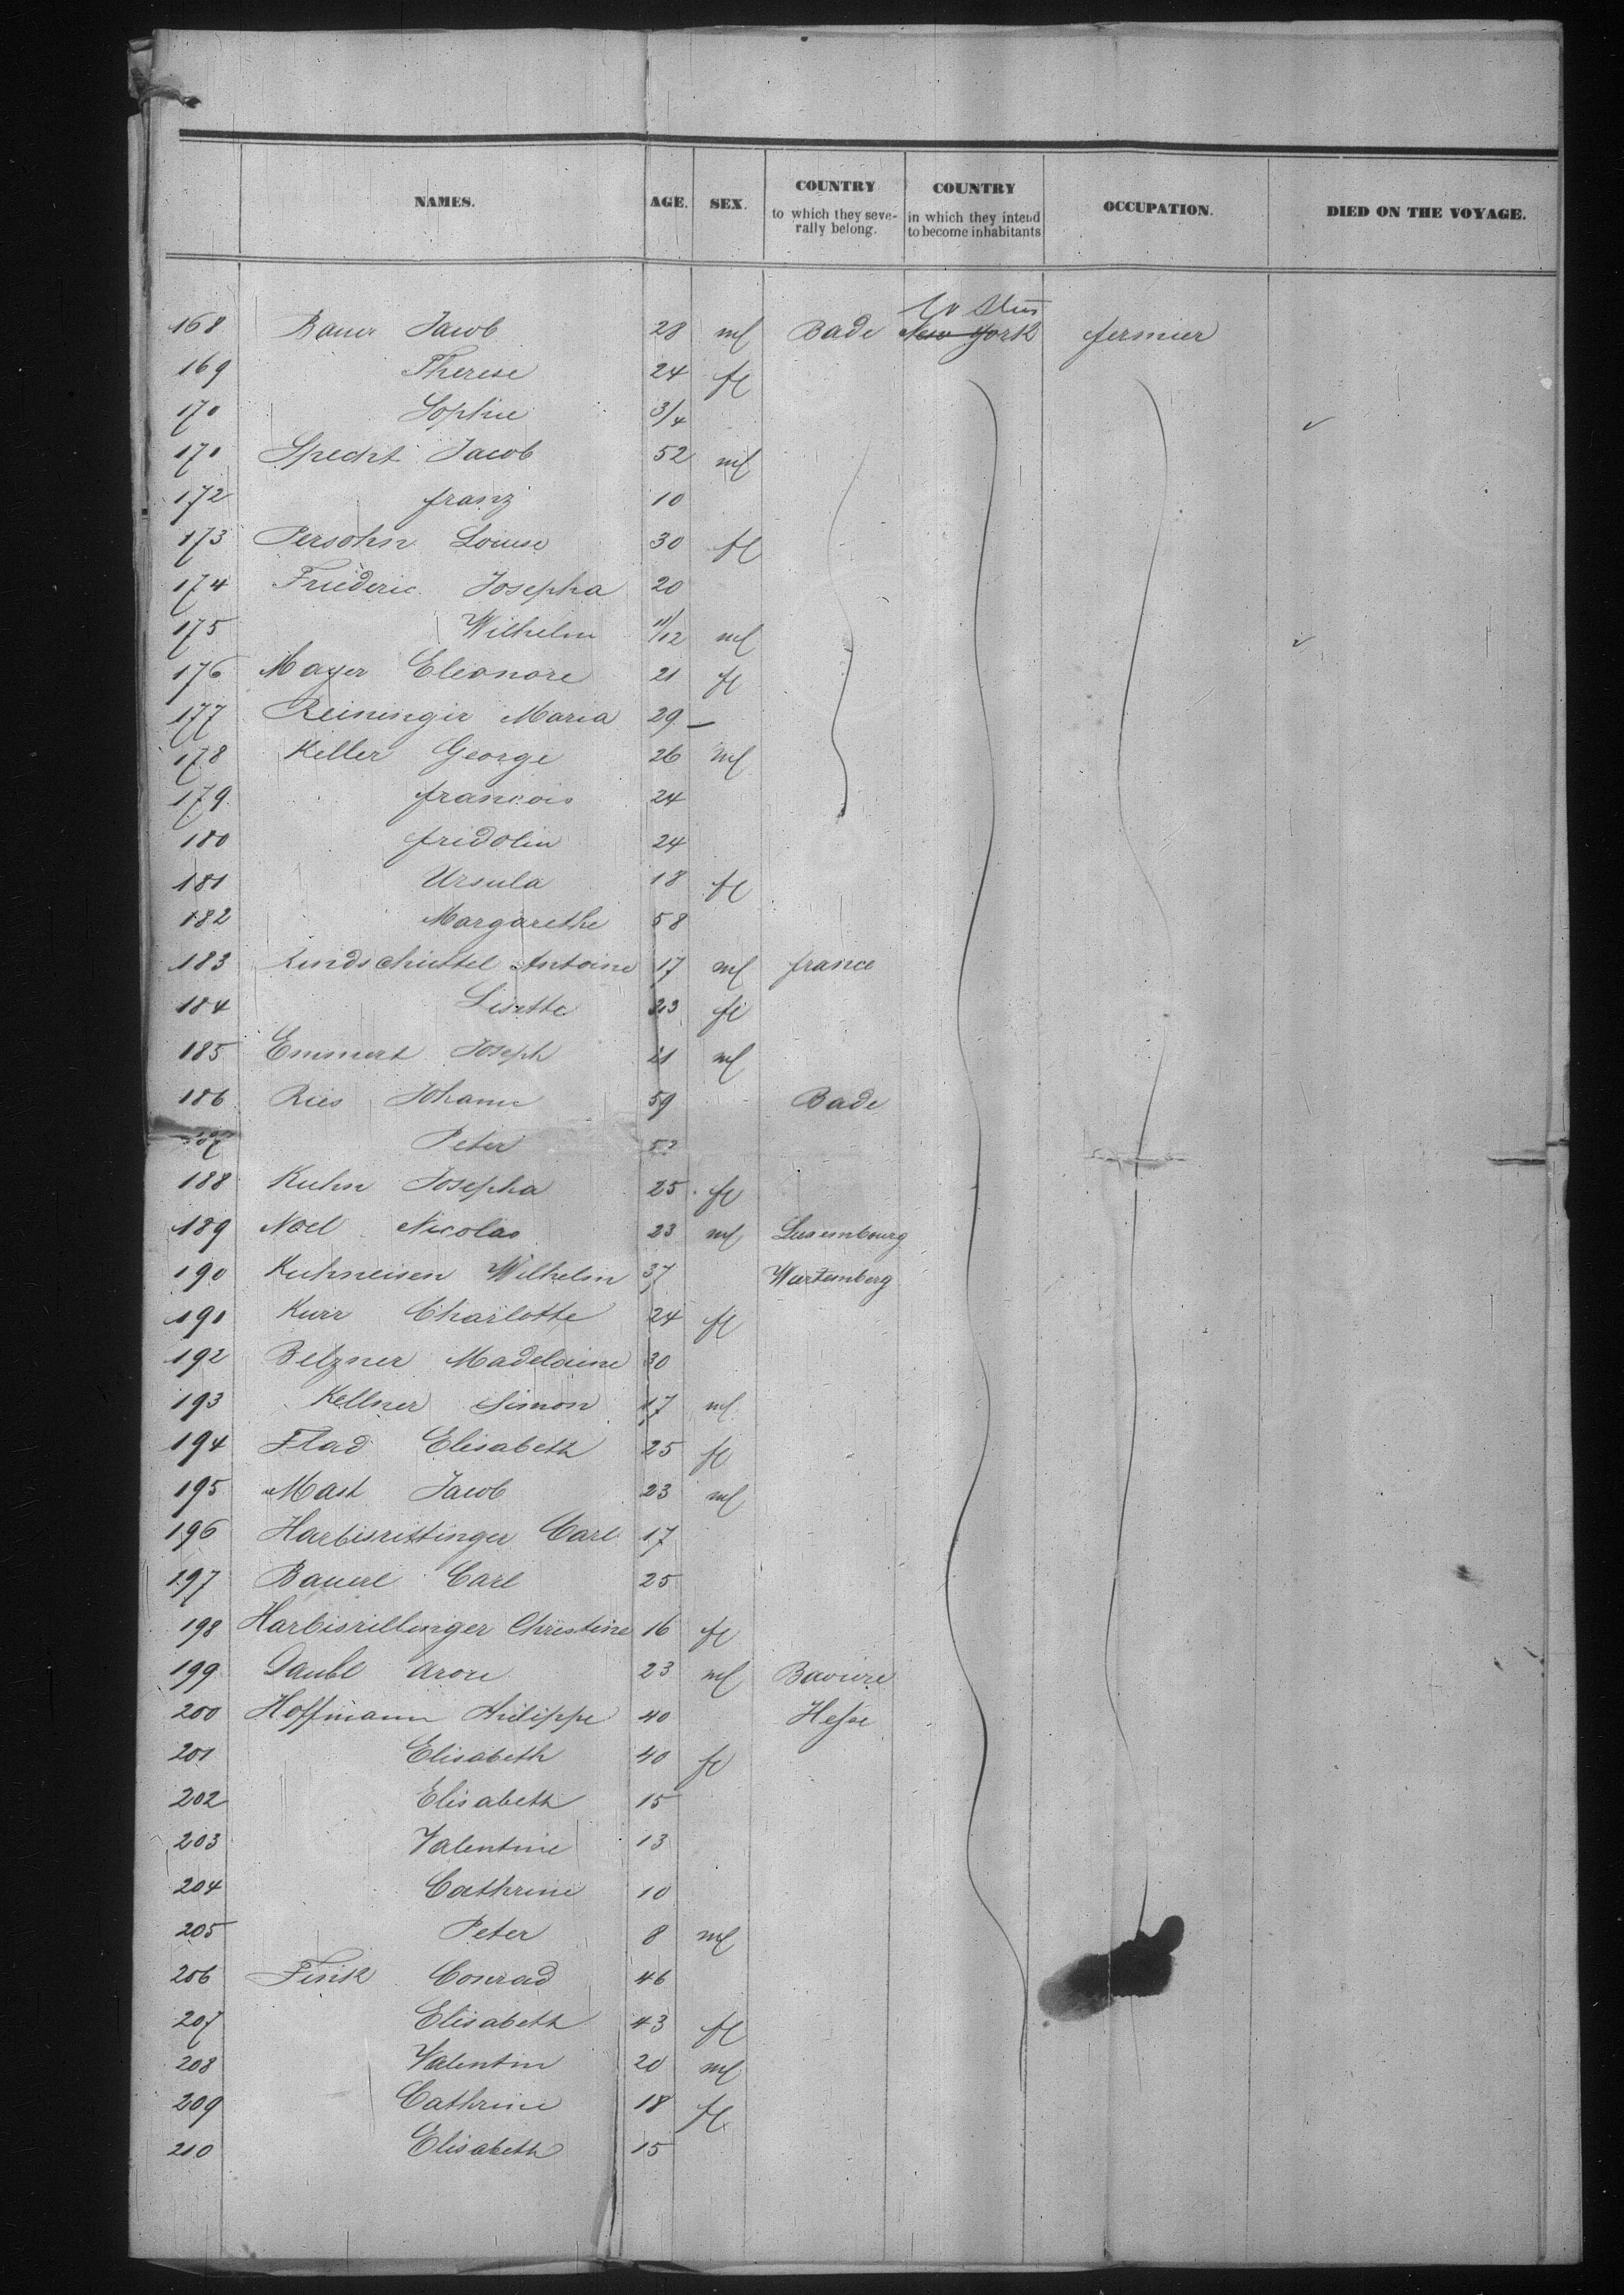 NAMES. AGE. SEX. COUNTRY to which they severally belong. COUNTRY in which they intend to become inhabitants OCCUPATION. DIED ON THE VOYAGE.
168 Bauer Jacob 28 ml Bade New York fermier
169 Therese 24 fl
170 Sophie 3/4
171 Specht Jacob 52 ml
172 franz 10
173 Persohn Louise 30 fl
174 Friederic Josepha 20
175 Wilhelm 11/12 ml
176 Mayer Eleonore 21 fl
177 Reininger Maria 29 —
178 Keller George 26 ml
179 francois 24
180 fridolin 24
181 Ursula 18 fl
182 Margarethe 58
183 Kindschuttel Antoine 17 ml france
184 Lisette 23 fl
185 Emmert Joseph 21 ml
186 Ries Johann 59 Bade
187 Peter 52
188 Kuhn Josepha 25 fl
189 Noel Nicolas 23 ml Luxembourg
190 Kuhneisen Wilhelm 37 Wurtemberg
191 Kurr Charlotte 24 fl
192 Belzner Madelaine 30
193 Kellner Simon 17 ml
194 Flad Elisabeth 25 fl
195 Mast Jacob 23 ml
196 Harbisrittinger Carl 17
197 Bauerl Carl 25
198 Harbisrillinger Christine 16 fl
199 Daubl Aron 23 ml Baviere
200 Hoffmann Philippe 40 Hesse
201 Elisabeth 40 fl
202 Elisabeth 15
203 Valentine 13
204 Cathrine 10
205 Peter 8 ml
206 Fink Conrad 46
207 Elisabeth 43 fl
208 Valentin 20 ml
209 Cathrine 18 fl
210 Elisabeth 15